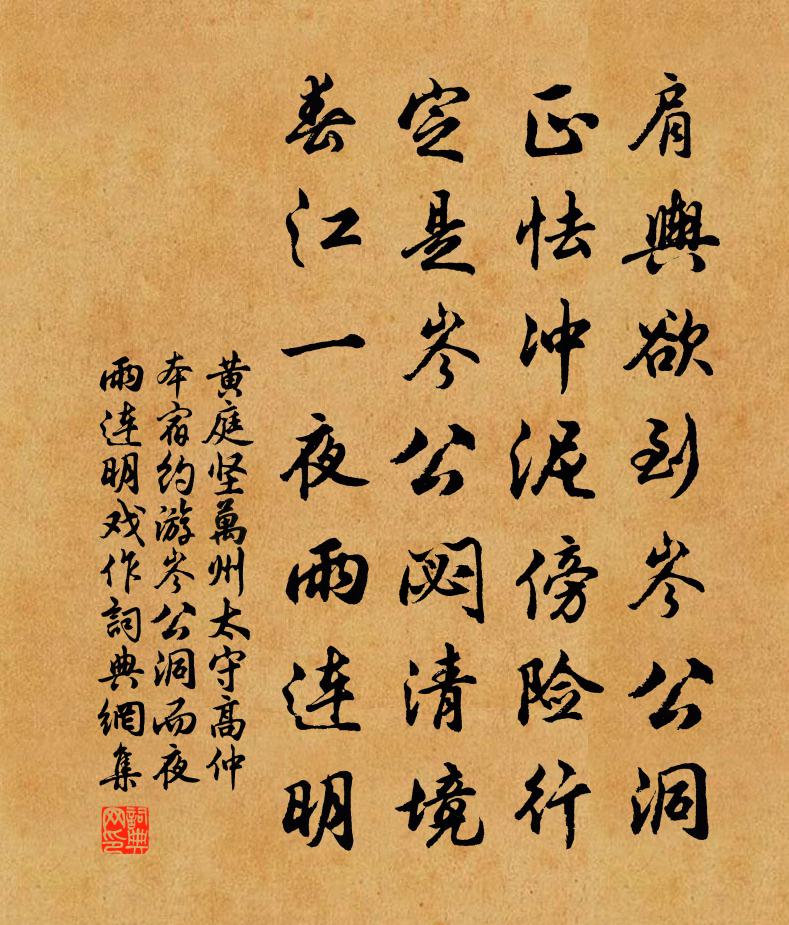 肩輿欲到岑公洞
正怯冲泥傍险行
定是岑公閟清境
春江一夜雨连明
黄庭坚萬州太守高仲
本宿约游岑公洞而夜
雨连明戏作詞典網集
詞典
网印